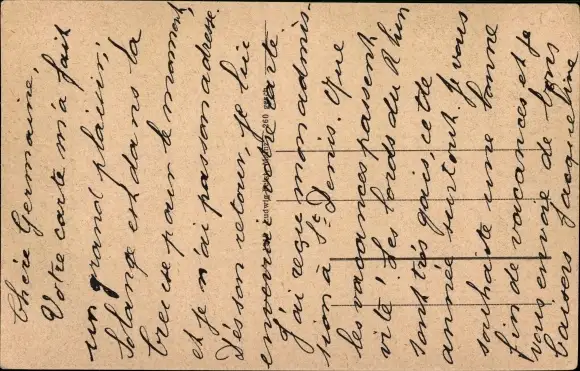 Chère Germaine,
Votre carte m'a fait
un grand plaisir,
Solange est dans la
Creuse pour le moment
et je n'ai pas son adresse.
Dès son retour, je lui
enverrai votre carte.
J'ai reçu mon admis-
sion à St Denis. Que
les vacances passent
vite! Les bords du Rhin
sont très gais, cette
année surtout. Je vous
souhaite une bonne
fin de vacances et je
vous envoie de bons
baisers Jacqueline